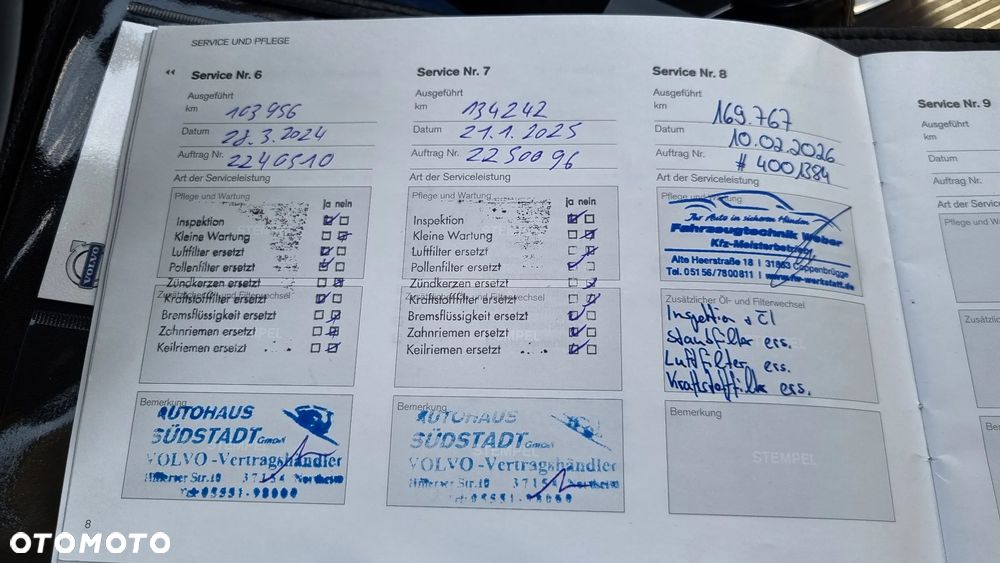 SERVICE UND PFLEGE
Service Nr. 6
Ausgeführt
km 103956
Datum 28.3.2024
Auftrag Nr. 2240510
Art der Serviceleistung
Pflege und Wartung
Ja nein
Inspektion
Kleine Wartung
Luftfilter ersetzt
Pollenfilter ersetzt
Zündkerzen ersetzt
Zusätzlicher Öl- und Filterwechsel
Kraftstofffilter ersetzt
Bremsflüssigkeit ersetzt
Zahnriemen ersetzt
Keilriemen ersetzt
Bemerkung
AUTOHAUS
SÜDSTADT GmbH
VOLVO-Vertragshändler
37154 Northeim
Service Nr. 7
Ausgeführt
km 134242
Datum 21.1.2025
Auftrag Nr. 2250096
Art der Serviceleistung
Pflege und Wartung
Ja nein
Inspektion
Kleine Wartung
Luftfilter ersetzt
Pollenfilter ersetzt
Zündkerzen ersetzt
Kraftstofffilter ersetzt
Bremsflüssigkeit ersetzt
Zahnriemen ersetzt
Keilriemen ersetzt
Bemerkung
AUTOHAUS
SÜDSTADT GmbH
VOLVO-Vertragshändler
37154 Northeim
Service Nr. 8
Ausgeführt
km 169.767
Datum 10.02.2026
Auftrag Nr. #4001384
Art der Serviceleistung
Pflege und Wartung
Ihr Auto in sicheren Händen
Fahrzeugtechnik Weber
Kfz-Meisterbetrieb
Alte Heerstraße 18 | 31863 Coppenbrügge
Tel. 05156/7800811 | www.fw-werkstatt.de
Zusätzlicher Öl- und Filterwechsel
Inspektion + Öl
Staubfilter ers.
Luftfilter ers.
Kraftstofffilter ers.
Bemerkung
STEMPEL
Service Nr. 9
Ausgeführt
km
Datum
Auftrag Nr.
Art der Service
Pflege und Wa
Zusätzlic
Be
8
VOLVO
OTOMOTO